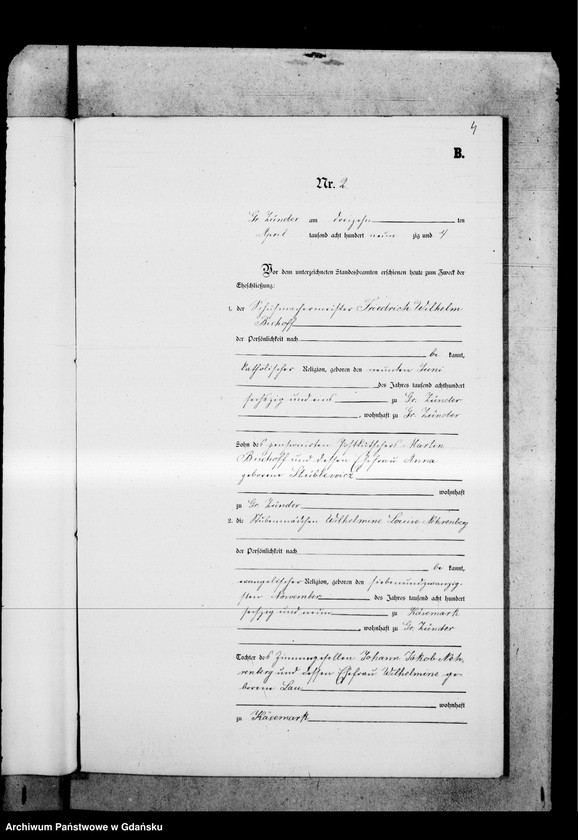 4
B.
Nr. 2
Gr. Zünder am dreizehn ten
April tausend acht hundert neun zig und 4
Vor dem unterzeichneten Standesbeamten erschienen heute zum Zweck der
Eheschließung:
1. der Schuhmachermeister Friedrich Wilhelm
Bischoff
der Persönlichkeit nach
be kannt,
katholischer Religion, geboren den neunten Juni
des Jahres tausend achthundert
sechszig und eins zu Gr. Zünder
, wohnhaft zu Gr. Zünder
Sohn des Martin
Bischoff und dessen Ehefrau Anna
geborene
wohnhaft
zu Gr. Zünder
2. die Stubenmädchen Wilhelmine Louise Nöhrenberg
der Persönlichkeit nach
be kannt,
evangelischer Religion, geboren den siebenundzwanzig-
sten November des Jahres tausend acht hundert
sechszig und neun zu Käsemark
, wohnhaft zu Gr. Zünder
Tochter des Zimmergesellen Johann Jakob Nöh-
renberg und dessen Ehefrau Wilhelmine ge-
borene Lau
wohnhaft
zu Käsemark
Archiwum Państwowe w Gdańsku